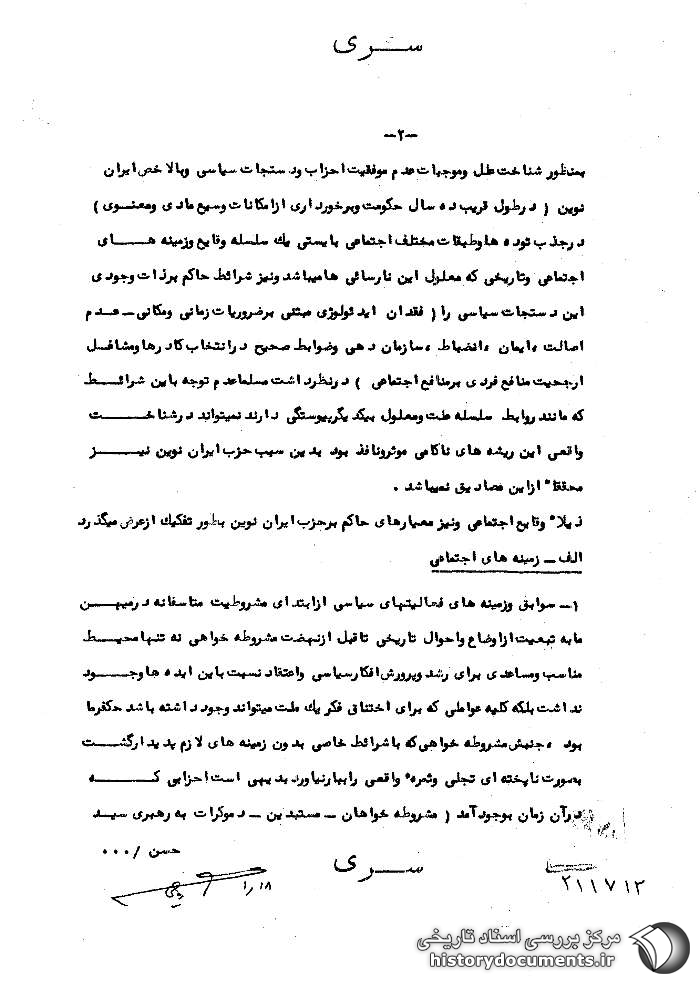 سـری
-۲-
بمنظور شناخت علل وموجبات عدم موفقیت احزاب ودستجات سیاسی وبالاخص ایران
نوین ( درطول قریب ده سال حکومت وبرخورداری ازامکانات وسیع مادی ومعنوی )
درجذب توده هاوطبقات مختلف اجتماعی بایستی یك سلسله وقایع وزمینه هـــای
اجتماعی وتاریخی که معلول این نارسائی هامیباشد ونیز شرائط حاکم برذات وجودی
این دستجات سیاسی را ( فقدان ایدئولوژی مبتنی برضروریات زمانی ومکانی ــ عــدم
اصالت ،ایمان ،انضباط ،سازمان دهی وضوابط صحیح درانتخاب کادرهاومشاغــل
ارجحیت منافع فردی برمنافع اجتماعی ) درنظرداشت مسلماعدم توجه باین شرائـــط
که مانند روابط سلسله علت ومعلول بیکدیگرپیوستگی دارند نمیتواند درشناخـــت
واقعی این ریشه های ناکامی موثرونافذ بود بدین سبب حزب ایران نوین نیـــز
محققا" ازاین مصادیق نمیباشد .
ذیلا" وقایع اجتماعی ونیز معیارهای حاکم برحزب ایران نوین بطور تفکیك ازعرض میگذرد
الف ــ زمینه های اجتماعی
۱ــ سوابق وزمینه های فعالیتهای سیاسی ازابتدای مشروطیت متاسفانه درمیهــن
مابه تبعیت ازاوضاع واحوال تاریخی تاقبل ازنهضت مشروطه خواهی نه تنهامحیــط
مناسب ومساعدی برای رشد وپرورش افکارسیاسی واعتقاد نسبت باین ایده هاوجــود
نداشت بلکه کلیه عواملی که برای اختناق فکریك ملت میتواند وجود داشته باشد حکمفرما
بود ،جنبش مشروطه خواهی که باشرائط خاصی بدون زمینه های لازم پدیدارگشــت
بصورت ناپخته ای تجلی وثمره" واقعی راببارنیاورد بدیهی است احزابی کـــــه
درآن زمان بوجود آمد ( مشروطه خواهان ــ مستبدین ــ دموکرات به رهبری سیــد
حسن /۰۰۰
سـری
۱٫۱۸
۲۱۱۷۱۲
مرکز بررسی اسناد تاریخی
historydocuments.ir